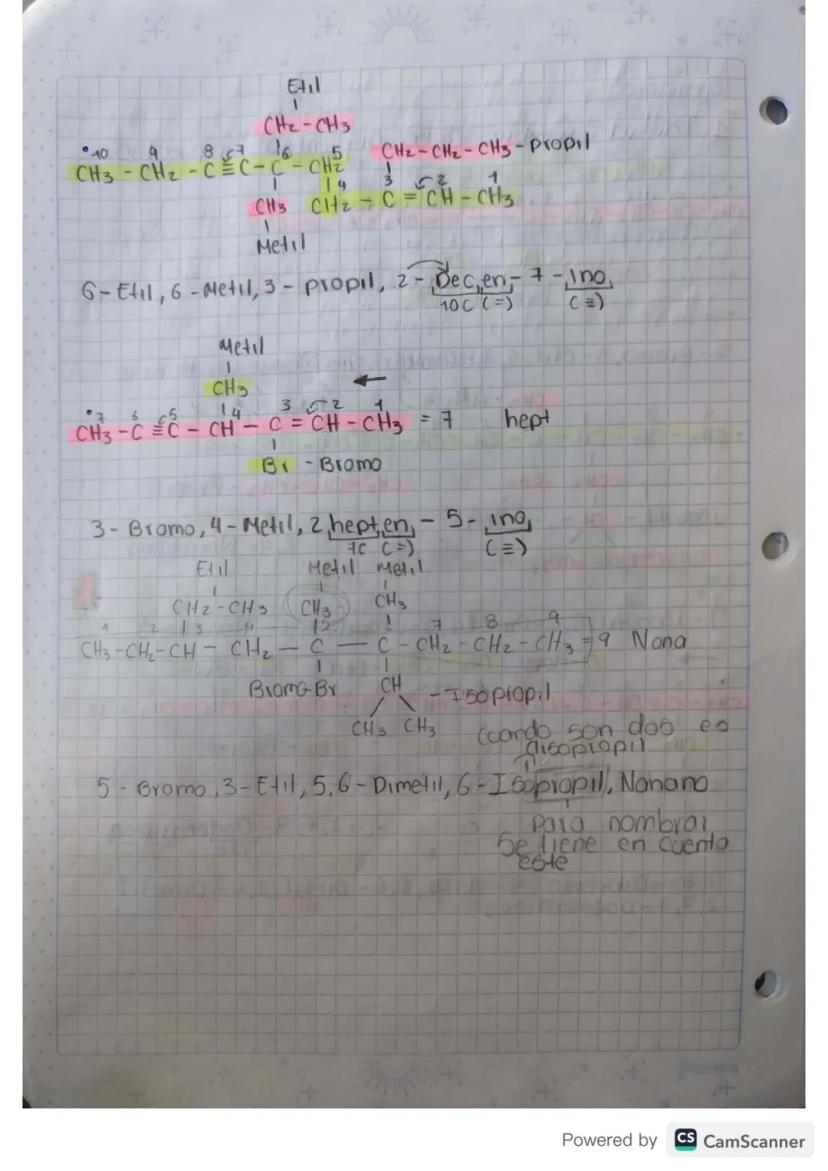 Etil
CH2-CH3
10 9 8 7 6 5
CH3 - CH2 - C ≡ C - C - CH2
CH2-CH2-CH3-propil
4 3 2 1
CH3 CH2 - C = CH - CH3
Metil
6-Etil, 6-Metil, 3-propil, 2-Dec,en,-7-,ino,
10C (=) (≡)
Metil
CH3
7 6 5 4 3 2 1
CH3-C≡C-CH-C=CH-CH3=7 hept
Br-Bromo
3-Bromo,4-Metil,2,hept,en,-5-,ino,
7C (=) (≡)
Etil Metil Metil
CH2-CH3 CH3 CH3
1 2 3 4 5 7 8 9
CH3-CH2-CH-CH2-C-C-CH2-CH2-CH3=9 Nona
Bromo-Br CH -Isopropil
CH3 CH3 Cuando son dos es
disopropil
5-Bromo,3-Etil,5,6-Dimetil,6-Isopropil,Nonano
para nombrar
Se tiene en cuenta
este
Powered by CS CamScanner